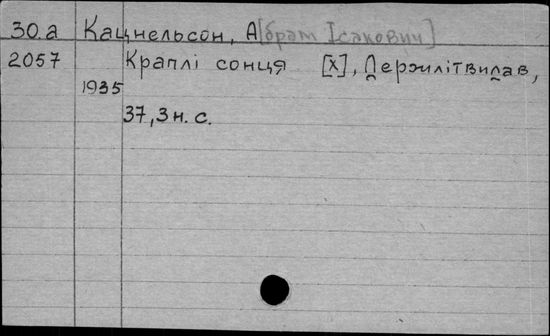 30.а Кацнельсон, А[брам Ісакович]
2057 Краплі сонця [Х], Держлітвидав,
1935
37,3 н. с.